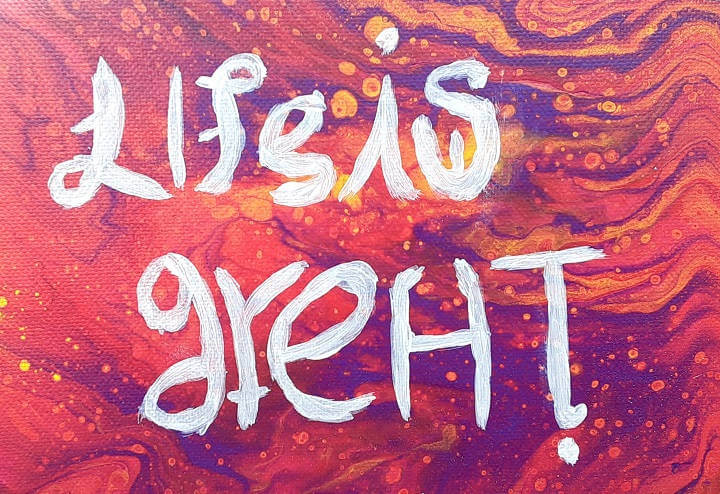 Life is
greAT!